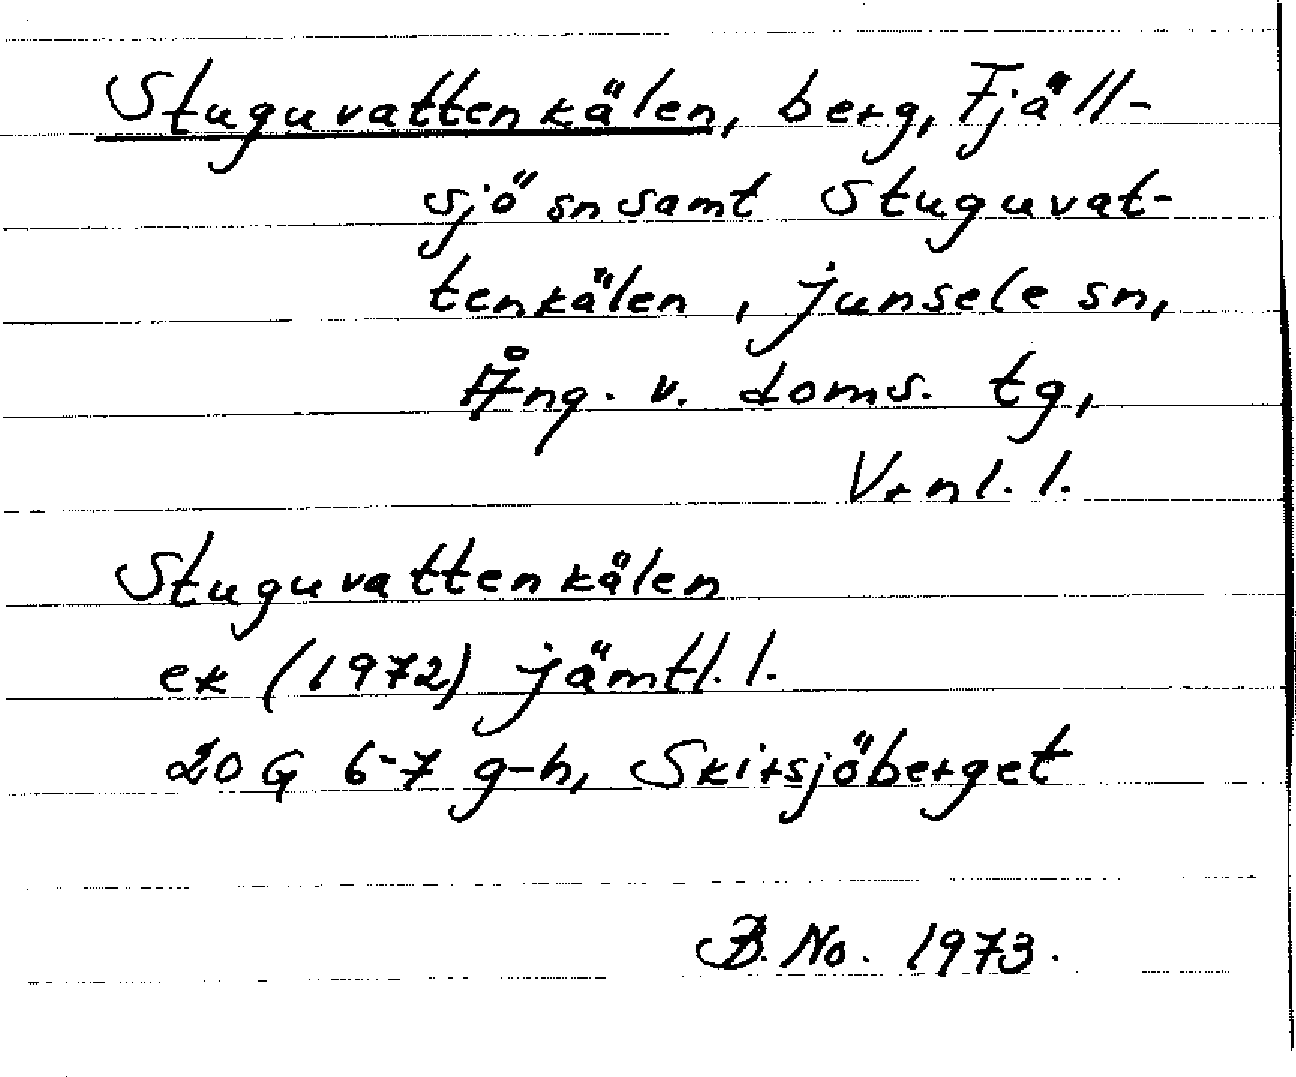 Stuguvattenkälen, berg, Fjäll-
sjö sn samt Stuguvat-
tenkälen, Junsele sn,
Ång. v. doms. tg,
Vrnl. l.
Stuguvattenkälen
ek (1972) jämtl. l.
20 G 6-7 g-h, Skirsjöberget
B. No. 1973.